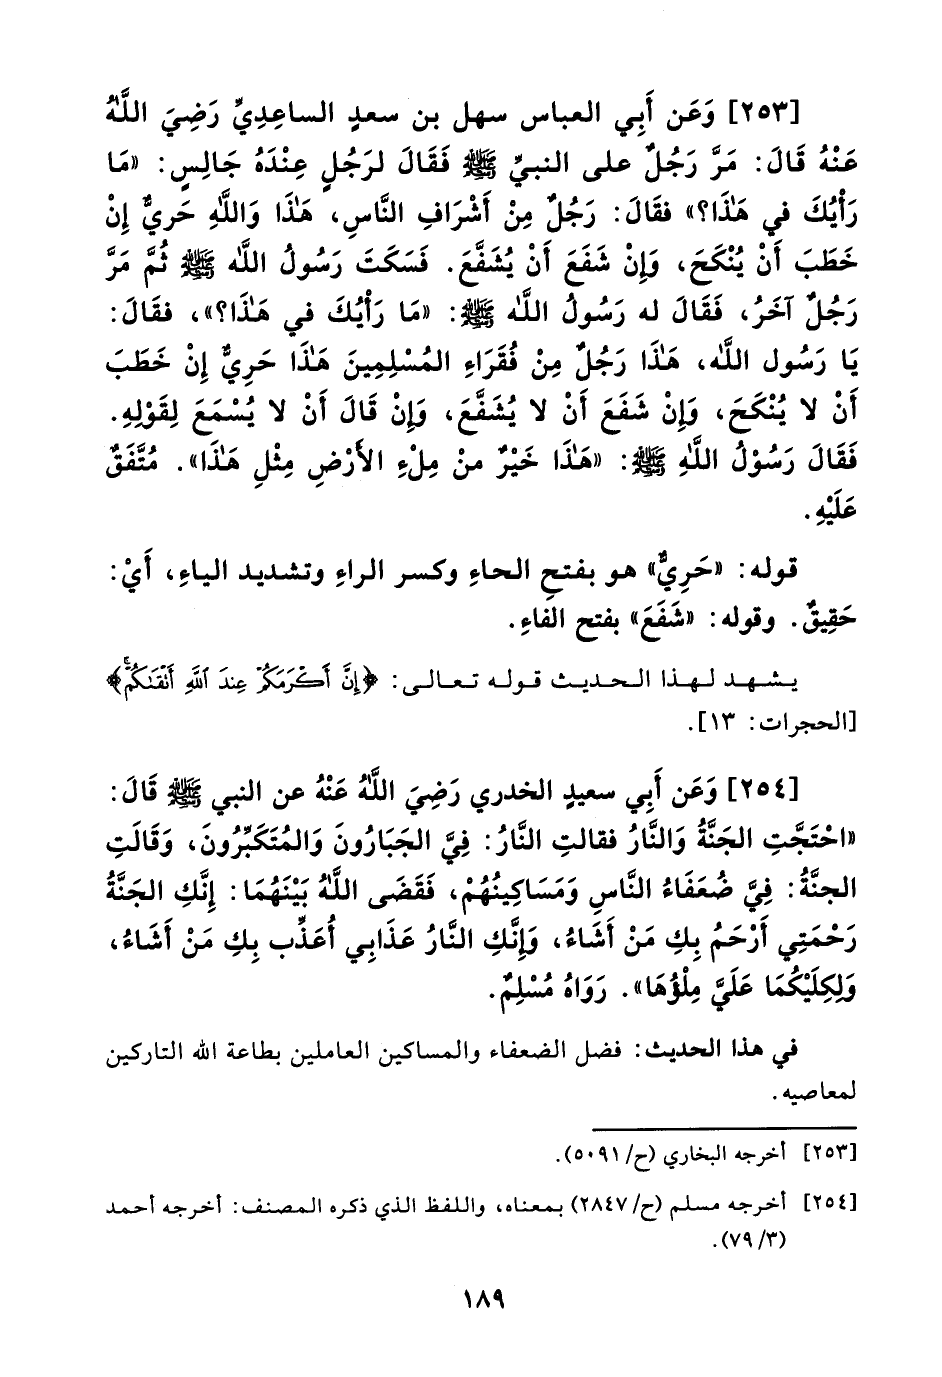 [٢٥٣] وَعَن أَبِي العباس سهل بن سعدٍ الساعِدِيِّ رَضِيَ اللَّهُ
عَنْهُ قَالَ: مَرَّ رَجُلٌ على النبيِّ ﷺ فَقَالَ لرَجُلٍ عِنْدَهُ جَالِسٍ: «مَا
رَأْيُكَ في هَذَا؟» فقَالَ: رَجُلٌ مِنْ أَشْرَافِ النَّاسِ، هَذَا وَاللَّهِ حَرِيٌّ إِنْ
خَطَبَ أَنْ يُنْكَحَ، وَإِنْ شَفَعَ أَنْ يُشَفَّعَ. فَسَكَتَ رَسُولُ اللَّه ﷺ ثُمَّ مَرَّ
رَجُلٌ آخَرُ، فَقَالَ له رَسُولُ اللَّه ﷺ: «مَا رَأْيُكَ في هَذَا؟»، فقَالَ:
يَا رَسُول اللَّه، هَذَا رَجُلٌ مِنْ فُقَرَاءِ المُسْلِمِينَ هَذَا حَرِيٌّ إِنْ خَطَبَ
أَنْ لا يُنْكَحَ، وَإِنْ شَفَعَ أَنْ لا يُشَفَّعَ، وَإِنْ قَالَ أَنْ لا يُسْمَعَ لِقَوْلِهِ.
فَقَالَ رَسُوْلُ اللَّهِ ﷺ: «هَذَا خَيْرٌ منْ مِلْءِ الأَرْضِ مِثْلِ هَذَا». مُتَّفَقٌ
عَلَيْهِ.
قوله: «حَرِيٌّ» هو بفتحِ الحاءِ وكسر الراءِ وتشديد الياءِ، أَيْ:
حَقِيقٌ. وقوله: «شَفَعَ» بفتح الفاءِ.
يشهد لهذا الحديث قوله تعالى: ﴿إِنَّ أَكْرَمَكُمْ عِندَ ٱللَّهِ أَتْقَىٰكُمْ﴾
[الحجرات: ١٣].
[٢٥٤] وَعَن أَبي سعيدٍ الخدري رَضِيَ اللَّهُ عَنْهُ عن النبي ﷺ قَالَ:
«احْتَجَّتِ الجَنَّةُ وَالنَّارُ فقالتِ النَّارُ: فِيَّ الجَبَارُونَ وَالمُتَكَبِّرُونَ، وَقَالَتِ
الجنَّةُ: فِيَّ ضُعَفَاءُ النَّاسِ وَمَسَاكِينُهُمْ، فَقَضَى اللَّهُ بَيْنَهُمَا: إِنَّكِ الجَنَّةُ
رَحْمَتِي أَرْحَمُ بِكِ مَنْ أَشَاءُ، وَإِنَّكِ النَّارُ عَذَابِي أُعَذِّب بِكِ مَنْ أَشَاءُ،
وَلِكِلَيْكُمَا عَلَيَّ مِلْؤُهَا». رَوَاهُ مُسْلِمٌ.
في هذا الحديث: فضل الضعفاء والمساكين العاملين بطاعة الله التاركين
لمعاصيه.
[٢٥٣] أخرجه البخاري (ح/٥٠٩١).
[٢٥٤] أخرجه مسلم (ح/٢٨٤٧) بمعناه، واللفظ الذي ذكره المصنف: أخرجه أحمد
(٧٩/٣).
١٨٩